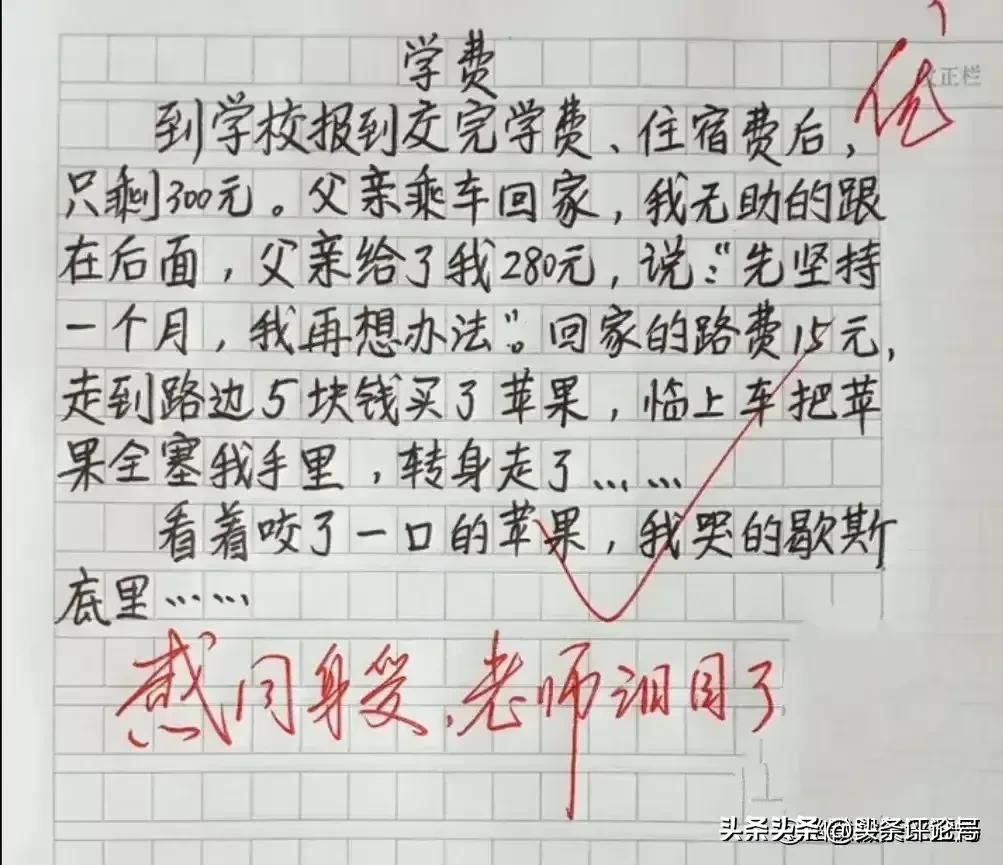 学费
优
改正栏
到学校报到交完学费、住宿费后，
只剩300元。父亲乘车回家，我无助的跟
在后面，父亲给了我280元，说：“先坚持
一个月，我再想办法”。回家的路费15元，
走到路边5块钱买了苹果，临上车把苹
果全塞我手里，转身走了……
看着咬了一口的苹果，我哭的歇斯
底里……
感同身受，老师泪目了
头条头条@